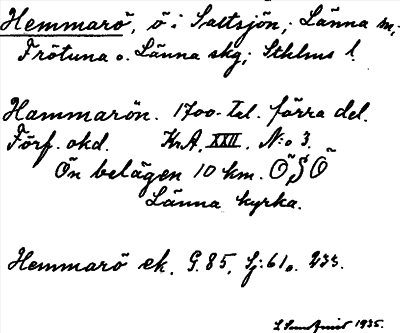 Hemmarö, ö i Saltsjön, Länna sn,
Frötuna o. Länna skg, Sthlms l.
Hammarön. 1700-tal. förra del.
Förf. okd. KrA, XXII. N:o 3.
Ön belägen 10 km. ÖSÖ
Länna kyrka.
Hemmarö ek. G. 85, Sj: 61 o. 233.
1935.